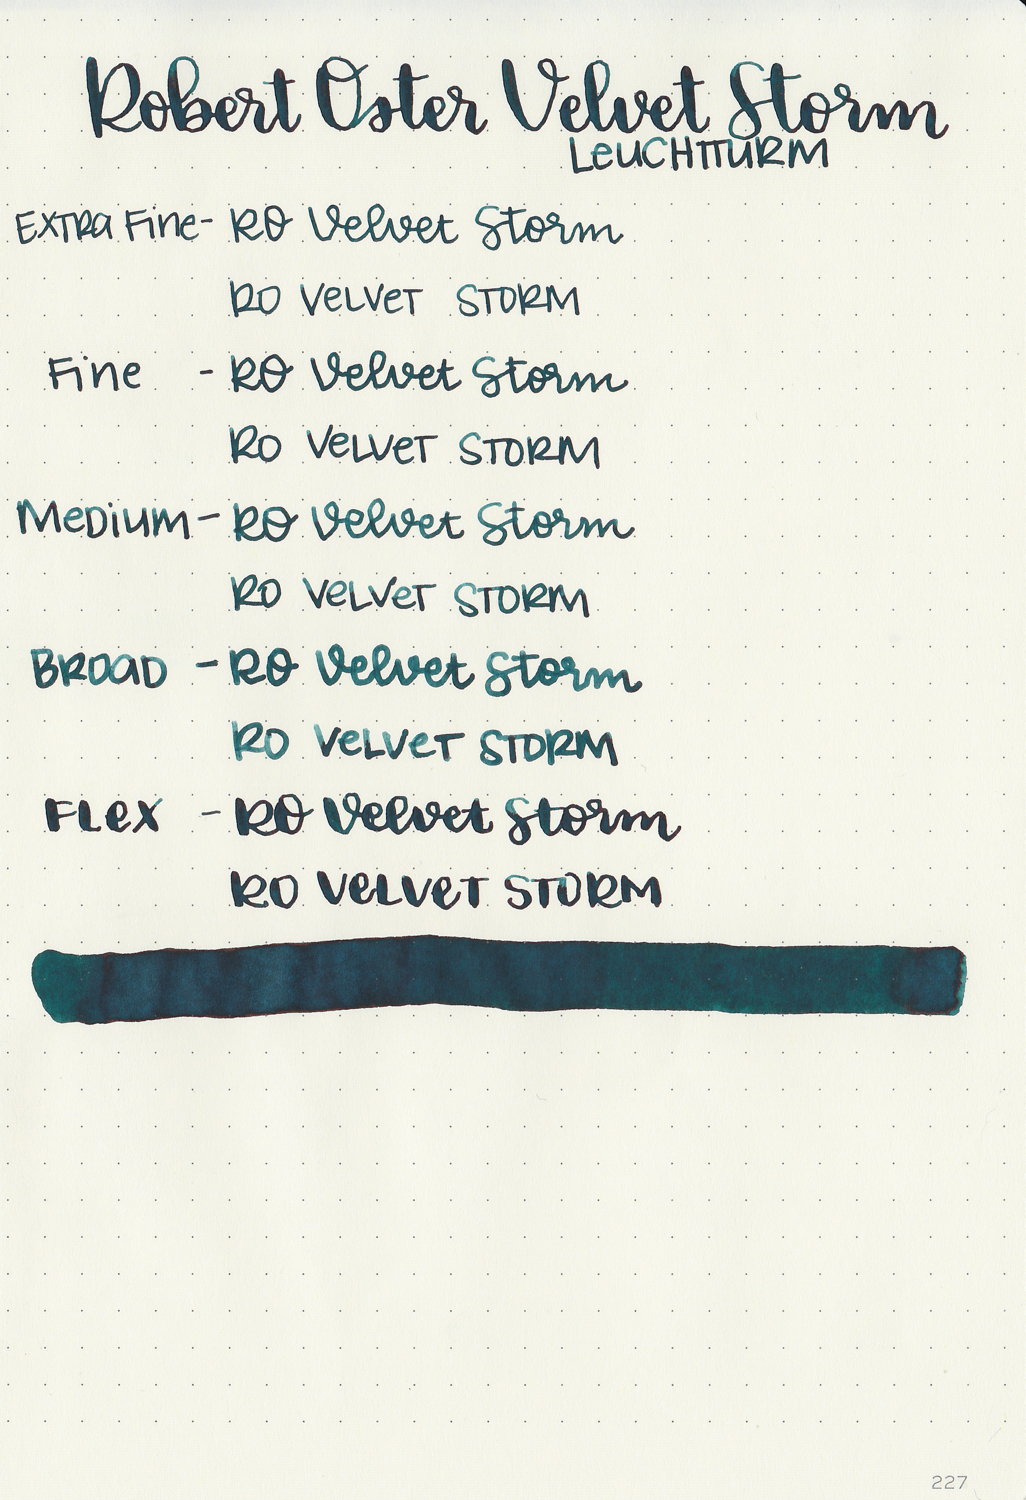 Robert Oster Velvet Storm
LeUCHTTURM
EXTRa Fine- RO Velvet Storm
RO VeLVeT STORM
Fine - RO Velvet Storm
RO VeLVeT STORM
MeDiUM - RO Velvet Storm
RO VeLVeT STORM
BROaD - RO Velvet Storm
RO VeLVeT STORM
FLeX - RO Velvet Storm
RO VeLVeT STORM
227